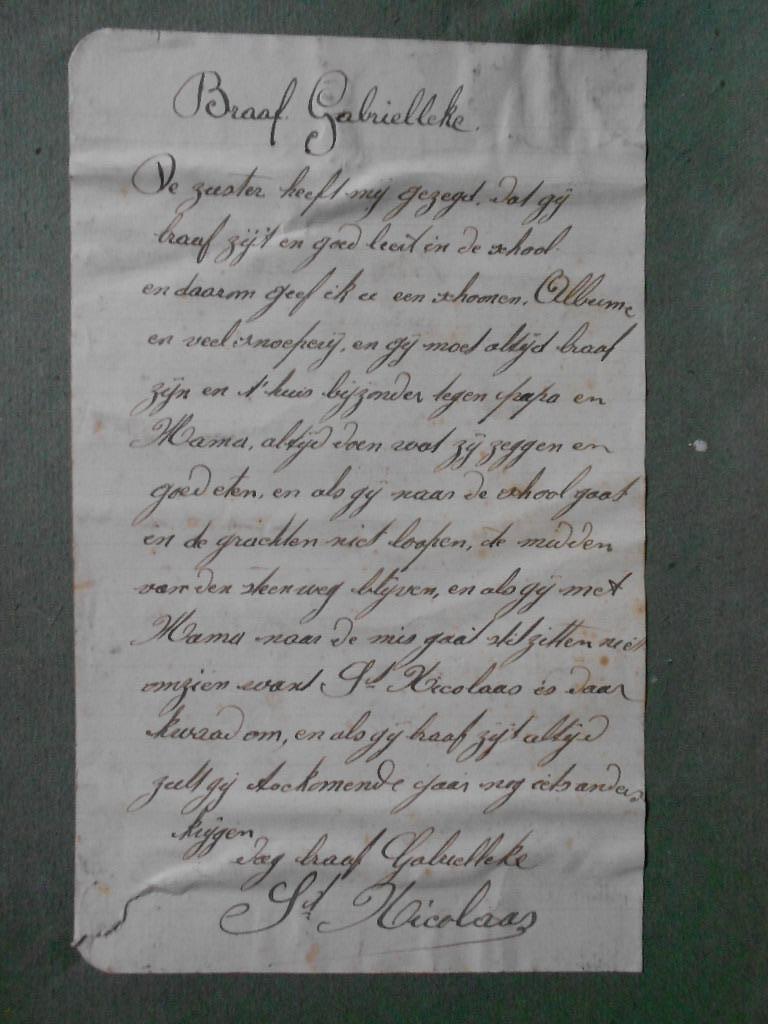 Braaf Gabrielleke.
De zuster heeft mij gezegd, dat gij
braaf zijt en goed leert in de school
en daarom geef ik u een schoonen, Albume
en veel snoeperij, en gij moet altijd braaf
zijn en t'huis bijzonder tegen papa en
Mama, altijd doen wat zij zeggen en
goed eten, en als gij naar de school gaat
in de grachten niet loopen, de midden
van den steenweg blijven, en als gij met
Mama naar de mis gaat stil zitten niet
omzien want St Nicolaas is daar
kwaad om, en als gij braaf zijt altijd
zult gij toekomende jaar nog iets anders
krijgen
dag braaf Gabrielleke
St Nicolaas